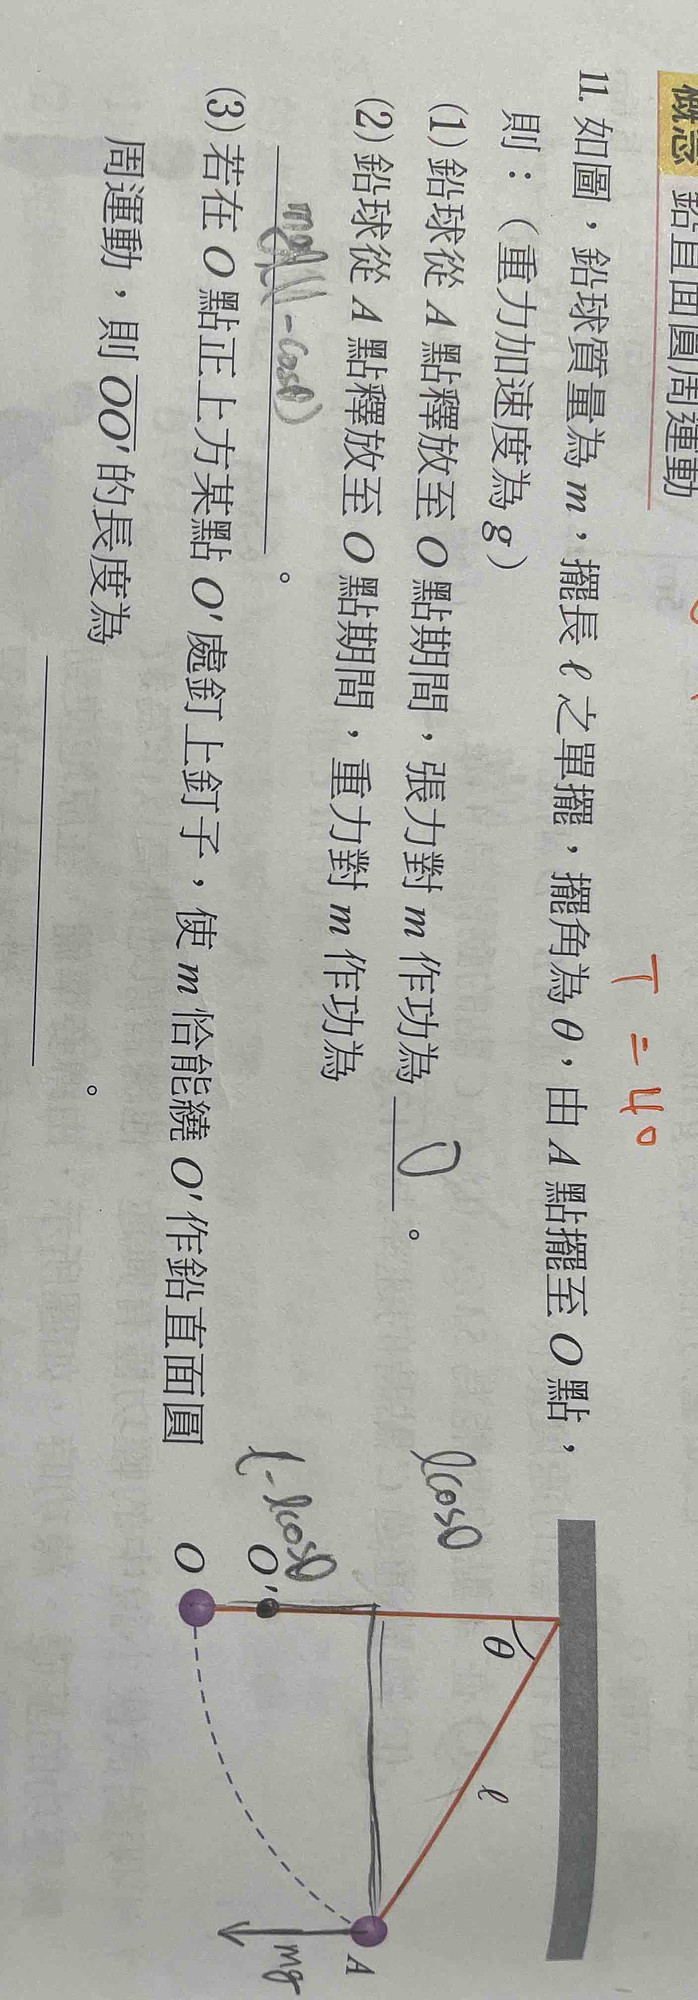 概念 鉛直面圓周運動
T = 40
11. 如圖，鉛球質量為 m，擺長 ℓ 之單擺，擺角為 θ，由 A 點擺至 O 點，
則：（重力加速度為 g）
(1) 鉛球從 A 點釋放至 O 點期間，張力對 m 作功為 0 。
(2) 鉛球從 A 點釋放至 O 點期間，重力對 m 作功為
mgl(1-cosθ) 。
(3) 若在 O 點正上方某點 O' 處釘上釘子，使 m 恰能繞 O' 作鉛直面圓
周運動，則 OO' 的長度為 。
θ
ℓ
lcosθ
l-lcosθ
A
O'
O
mg